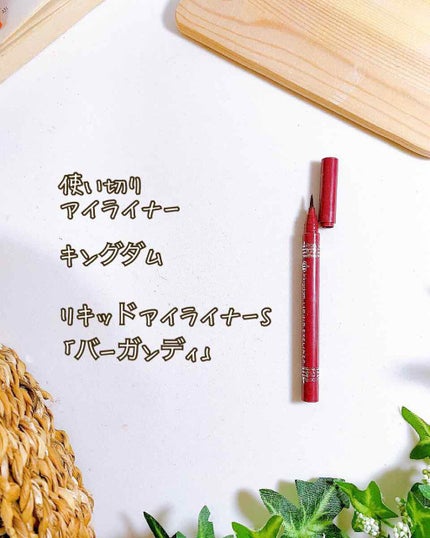 使い切り
アイライナー
キングダム
リキッドアイライナーS
「バーガンディ」